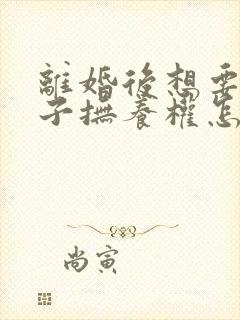 離婚後想要
子撫養權怎
尚寅